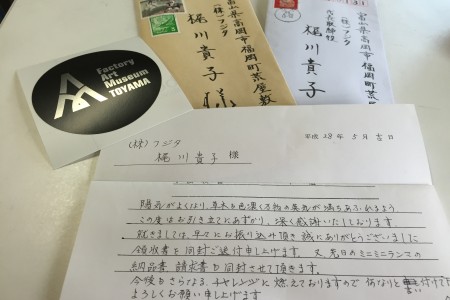 Factory
Art
Museum
TOYAMA
富山県高岡市福岡町荒屋敷
(株)フジタ
梶川貴子様
富山県高岡市福岡町荒
(株)フジタ
代表取締役
梶川貴子
平成28年5月吉日
(株)フジタ
梶川貴子 様
陽気がよくなり、草木も色濃く万物の英気が満ちあふれるよう
この度はお引き立てにあずかり、深く感謝いたしております
就きましては、早々にお振り込み頂き誠にありがとうございました
領収書を同封ご送付申し上げます 又 名日のミニミニランスの
納品書、請求書も同封させて頂きます。
今後もさらなる、チャレンジに燃えておりますので何なりと
よろしくお願い申し上げます